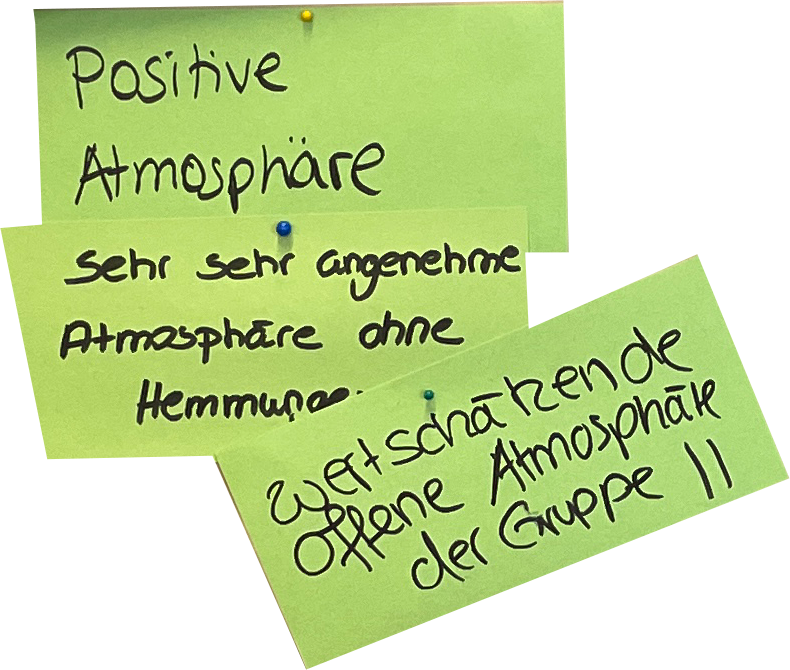 Positive
Atmosphäre
Sehr sehr angenehme
Atmosphäre ohne
Hemmungen
Wertschätzende
Offene Atmosphäre
der Gruppe !!